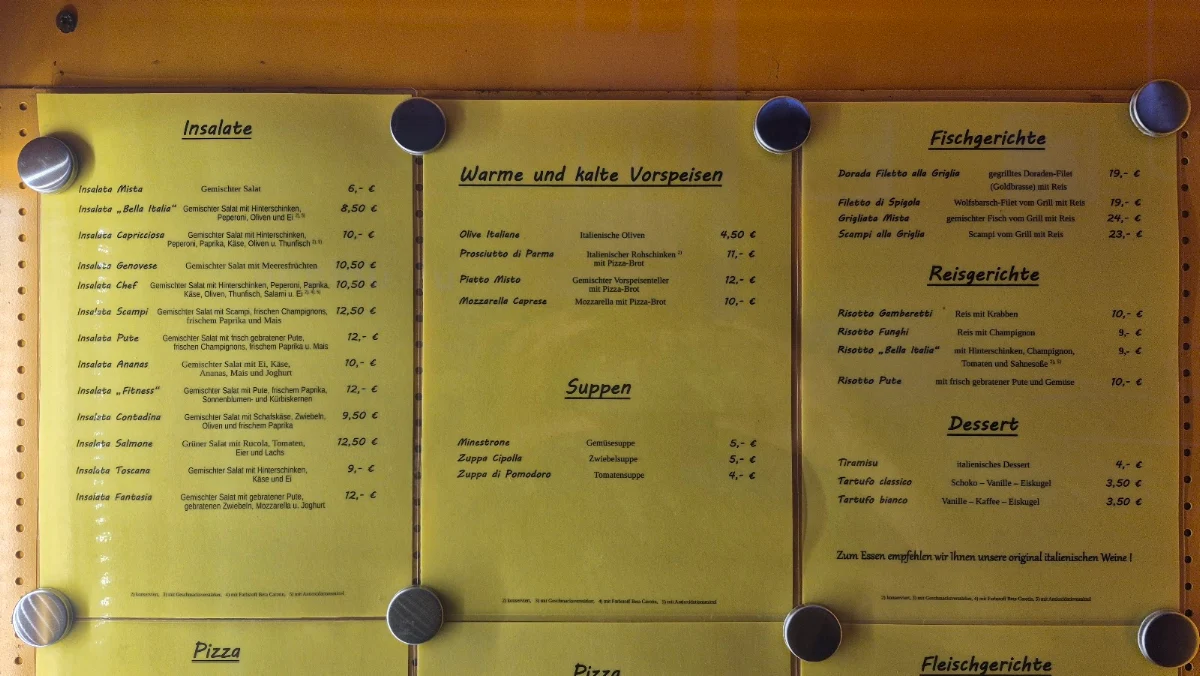 Insalate
Insalata Mista Gemischter Salat 6,- €
Insalata „Bella Italia“ Gemischter Salat mit Hinterschinken, 8,50 €
Peperoni, Oliven und Ei
Insalata Capricciosa Gemischter Salat mit Hinterschinken, 10,- €
Peperoni, Paprika, Käse, Oliven u. Thunfisch
Insalata Genovese Gemischter Salat mit Meeresfrüchten 10,50 €
Insalata Chef Gemischter Salat mit Hinterschinken, Peperoni, Paprika, 10,50 €
Käse, Oliven, Thunfisch, Salami u. Ei
Insalata Scampi Gemischter Salat mit Scampi, frischen Champignons, 12,50 €
frischem Paprika und Mais
Insalata Pute Gemischter Salat mit frisch gebratener Pute, 12,- €
frischen Champignons, frischem Paprika u. Mais
Insalata Ananas Gemischter Salat mit Ei, Käse, 10,- €
Ananas, Mais und Joghurt
Insalata „Fitness“ Gemischter Salat mit Pute, frischem Paprika, 12,- €
Sonnenblumen- und Kürbiskernen
Insalata Contadina Gemischter Salat mit Schafskäse, Zwiebeln, 9,50 €
Oliven und frischem Paprika
Insalata Salmone Grüner Salat mit Rucola, Tomaten, 12,50 €
Eier und Lachs
Insalata Toscana Gemischter Salat mit Hinterschinken, 9,- €
Käse und Ei
Insalata Fantasia Gemischter Salat mit gebratener Pute, 12,- €
gebratenen Zwiebeln, Mozzarella u. Joghurt
Pizza
Warme und kalte Vorspeisen
Olive Italiane Italienische Oliven 4,50 €
Prosciutto di Parma Italienischer Rohschinken 11,- €
mit Pizza-Brot
Piatto Misto Gemischter Vorspeisenteller 12,- €
mit Pizza-Brot
Mozzarella Caprese Mozzarella mit Pizza-Brot 10,- €
Suppen
Minestrone Gemüsesuppe 5,- €
Zuppa Cipolla Zwiebelsuppe 5,- €
Zuppa di Pomodoro Tomatensuppe 4,- €
Pizza
Fischgerichte
Dorada Filetto alla Griglia gegrilltes Doraden-Filet 19,- €
(Goldbrasse) mit Reis
Filetto di Spigola Wolfsbarsch-Filet vom Grill mit Reis 19,- €
Grigliata Mista gemischter Fisch vom Grill mit Reis 24,- €
Scampi alla Griglia Scampi vom Grill mit Reis 23,- €
Reisgerichte
Risotto Gamberetti Reis mit Krabben 10,- €
Risotto Funghi Reis mit Champignon 9,- €
Risotto „Bella Italia“ mit Hinterschinken, Champignon, 9,- €
Tomaten und Sahnesoße
Risotto Pute mit frisch gebratener Pute und Gemüse 10,- €
Dessert
Tiramisu italienisches Dessert 4,- €
Tartufo classico Schoko – Vanille – Eiskugel 3,50 €
Tartufo bianco Vanille – Kaffee – Eiskugel 3,50 €
Zum Essen empfehlen wir Ihnen unsere original italienischen Weine !
Fleischgerichte